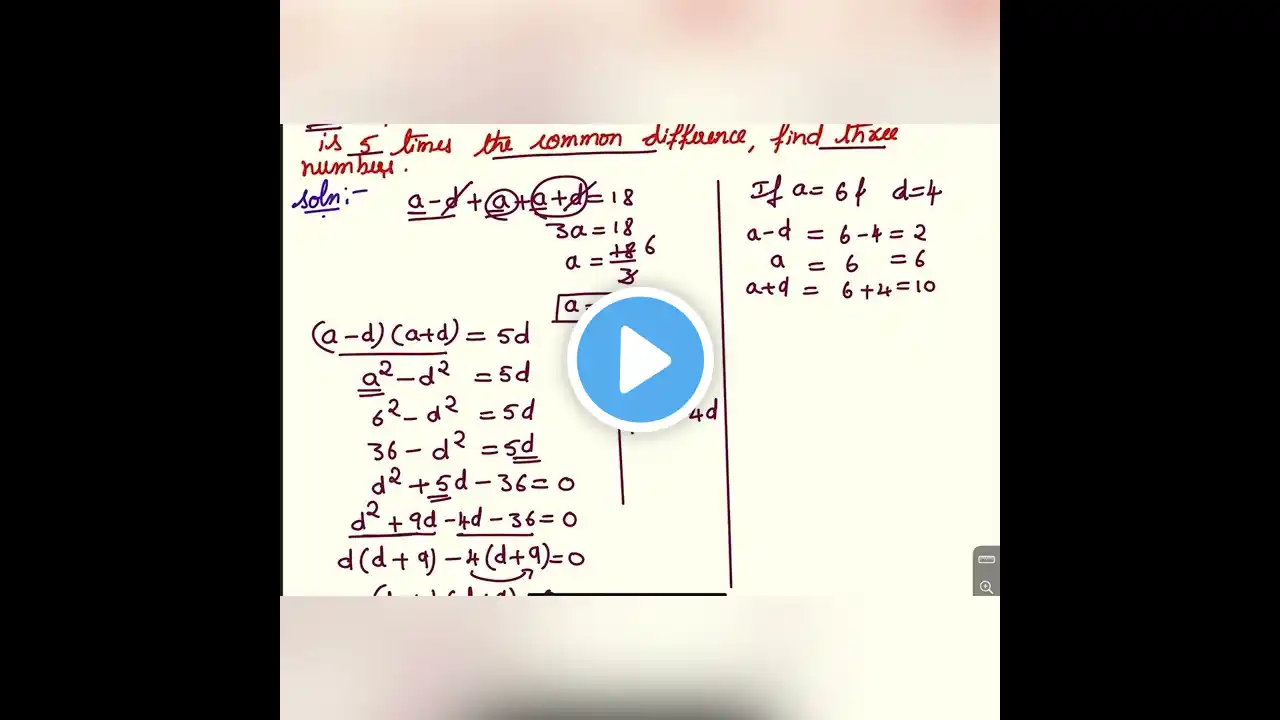 is 5 times the common difference, find three
numbers.
soln:-
a-d + a + a+d = 18
3a = 18
a = 18/3 6
a =
(a-d)(a+d) = 5d
a² - d² = 5d
6² - d² = 5d
36 - d² = 5d
d² + 5d - 36 = 0
d² + 9d - 4d - 36 = 0
d(d+9) - 4(d+9) = 0
4d
If a = 6 & d = 4
a-d = 6-4 = 2
a = 6 = 6
a+d = 6+4 = 10